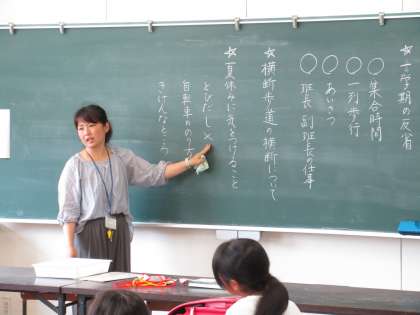 ☆一学期の反省
○集合時間
○一列歩行
○あいさつ
○班長 副班長の仕事
☆横断歩道の横断について
☆夏休みに気をつけること
とびだし ×
自転車ののり方
きけんなところ